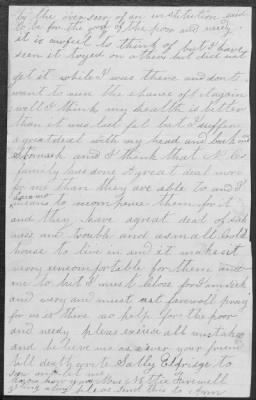 by the overseer of an institution said
to be for the good of the poor and needy
it is awful to think of but I have
seen it tryed on others but did not
get it while I was there and dont
want to run the chance of it again
well I think my health is better
than it was last fal but I suffer
a great deal with my head and back and
stomack and I think that
family has done a great deal more
for me than they are able to and I
have no means to recompense them for it
and they have a great deal of sick
ness and trouble and a small cold
house to live in and it makes it
very uncomfortable for them and
me to but I must close for I am sick
and very and must farewell pray
for us is there no help for the poor
and needy pleas excuse all mistakes
and believe me as ever your friend
till death yours Sally Eldridge to
you and let me
know how your Nettie Farewell
pleas send this to Ann